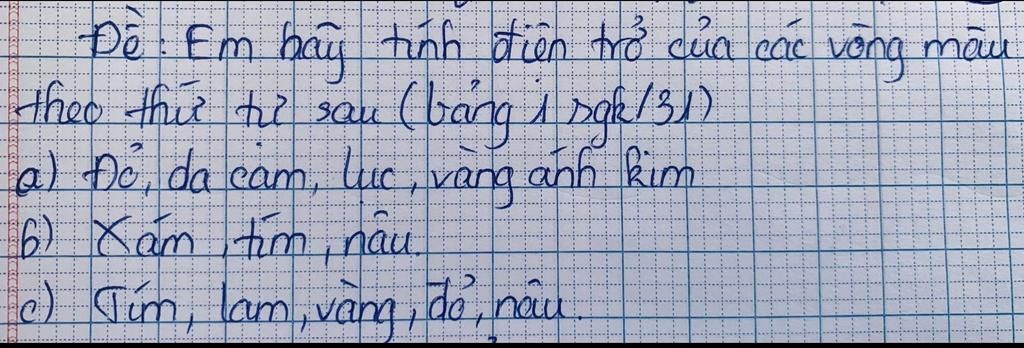 Đề: Em hãy tính điện trở của các vòng màu
theo thứ tự sau (bảng 1 sgk/31)
a) Đỏ, da cam, lục, vàng ánh kim
b) Xám, tím, nâu.
c) Tím, lam, vàng, đỏ, nâu.